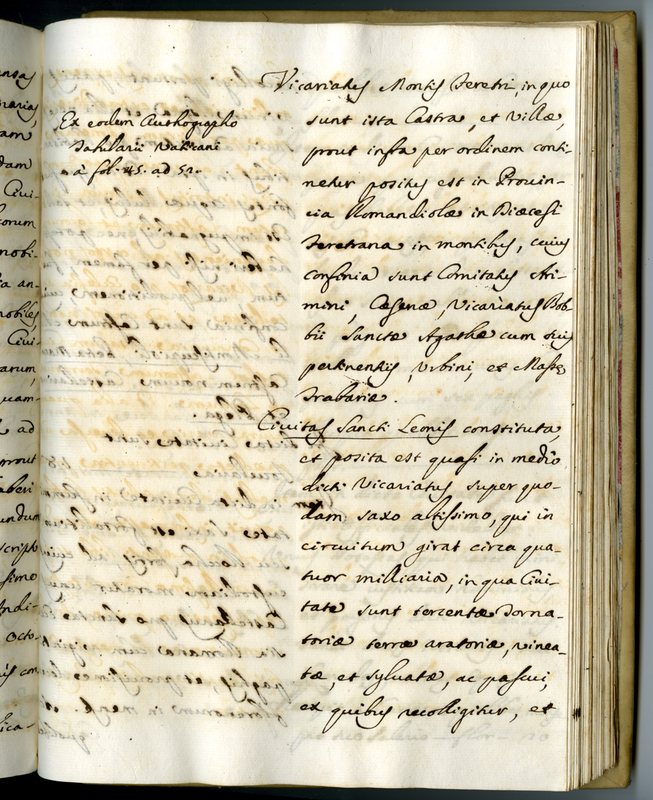 Vicariatus Montis Feretri, in quo
Ex eodem Authographo
Tabularii Vaticani
a fol. 45. ad 52.
sunt ista Castra, et Villæ,
prout infra per ordinem conti-
netur positus est in Provin-
cia Romandiolæ in Diæcesi
Feretrana in montibus, cuius
confinia sunt Comitatus Ari-
mini, Cæsenæ, Vicariatus Bob-
bii Sanctæ Agathæ cum suis
pertinentiis, Urbini, et Massæ
Trabariæ.
Civitas Sancti Leonis constituta,
et posita est quasi in medio
dicti Vicariatus super quo-
dam saxo altissimo, qui in
circuitum girat circa qua-
tuor milliaria, in qua Civi-
tate sunt tercentæ Torna-
toriæ terræ aratoriæ, vinea-
tæ, et sylvatæ, ac pascui,
ex quibus recolligitur, et